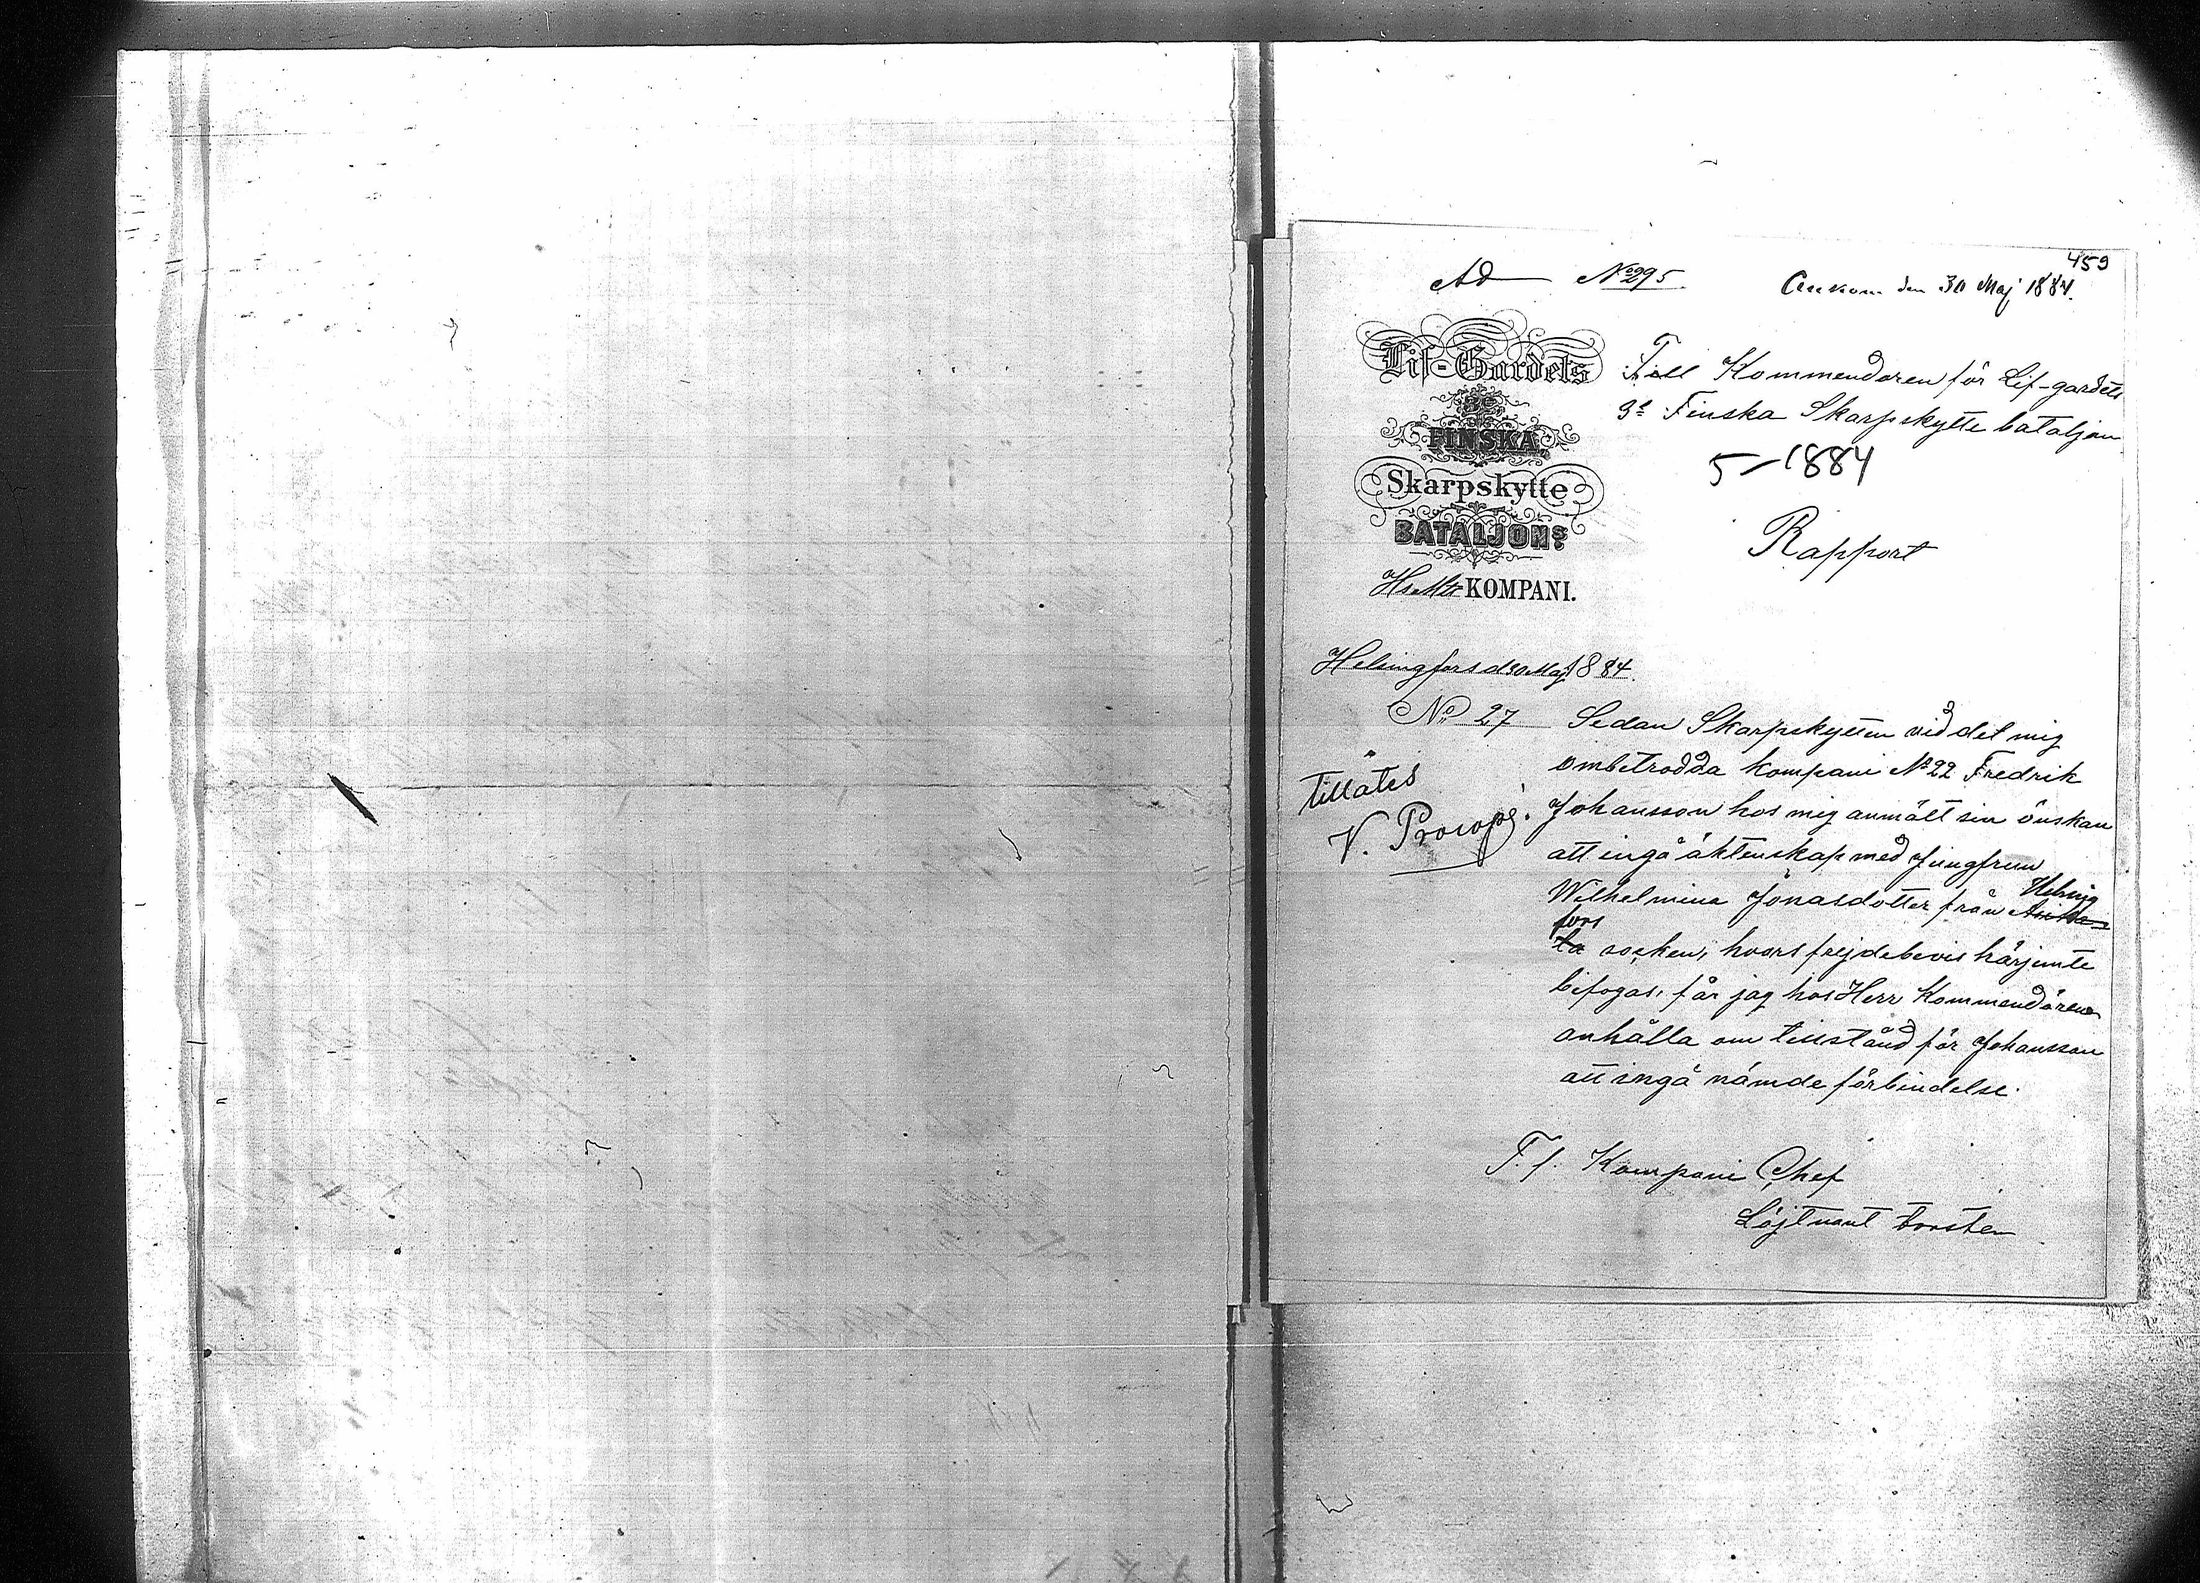 459
Ad No 295. Ankom den 30 Maj 1884.
Lif-Gardets
3e
FINSKA
Skarpskytte
BATALJONs:
KOMPANI.
Till Kommendören för Lif-gardets
3e Finska Skarpskytte bataljon
5-1884
Rapport
Helsingfors d 30 Maj 1884.
No 27
tillåtes
V. Procopé.
Sedan Skarpskytten vid det mig
ombetrodda kompani No 22 Fredrik
Johansson hos mig anmält sin önskan
att ingå äktenskap med Jungfrun
Wilhelmina Jonasdotter från Helsing
fors socken, hvars frejdebevis härjemte
bifogas, får jag hos Herr Kommendören
anhålla om tillstånd för Johansson
att ingå nämde förbindelse.
T. f. Kompani Chef
Löjtnant